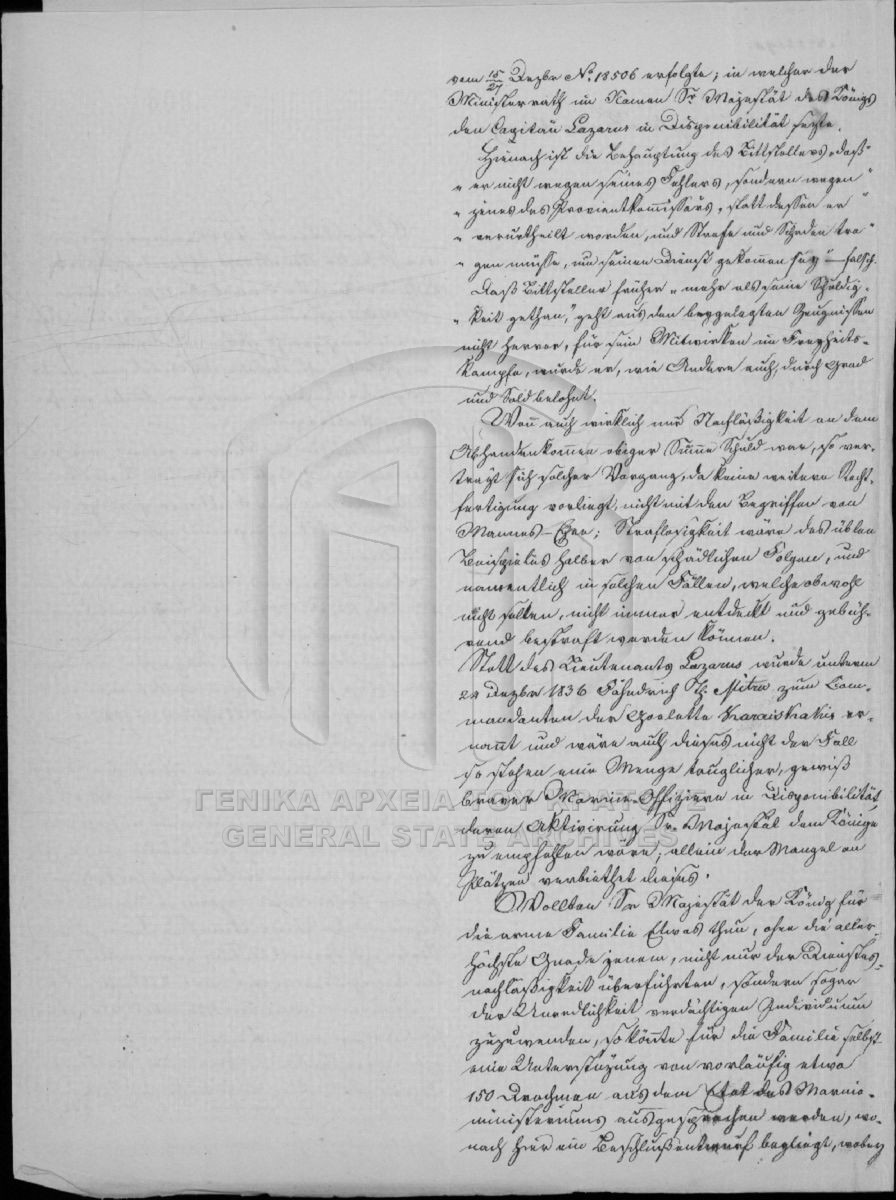 vom 15/27 Dezbr No. 18506 erfolgte; in welcher der
Ministerrath im Namen Sr. Majestät des Königs
den Capitän Lazarus in Disponibilität setzte.
Hienach ist die Behauptung des Bittstellers „daß"
„ er nicht wegen seines Fehlers, sondern wegen "
„ jenes des Provientkommissärs, statt dessen er "
„ verurtheilt worden, und Strafe und Schaden tra "
„ gen müsse, um seinen Dienst gekommen sey" – falsch.
Daß Bittsteller früher „ mehr als seine Schuldig-
„ keit gethan," geht aus den beygelegten Zeugnissen
nicht hervor, für sein Mitwirken im Freyheits-
kampfe, wurde er, wie Andere auch, durch Grad
und Sold belohnt.
Wenn auch wirklich nur Nachläßigkeit an dem
Abhandenkommen obiger Summe Schuld war, so ver-
trägt sich solcher Vorgang, da keine weitere Recht-
fertigung vorliegt, nicht mit den Begriffen von
Mannes-Ehre; Straflosigkeit wäre des üblen
Beispieles halber von schädlichen Folgen, und
namentlich in solchen Fällen, welche obwohl
nicht selten, nicht immer entdeckt und gebüh-
rend bestraft werden können.
Statt des Lieutenants Lazarus wurde unterm
24 Dezbr 1836 Fähndrich Mitru zum Com-
mandanten der Goelette Karaiskakis er-
nannt und wäre auch dieses nicht der Fall
so stehen eine Menge tauglicher, gewiß
braver Marine-Offiziere in Disponibilität,
deren Aktivirung Sr. Majestät dem Könige
zu empfehlen wäre; allein der Mangel an
Plätzen verbiethet dieses.
Wollten Sr Majestät der König für
die arme Familie Etwas thun, ohne die aller-
höchste Gnade jenem, nicht nur der Dienstes-
nachläßigkeit überführten, sondern sogar
der Unredlichkeit verdächtigen Individuum
zuzuwenden, so könnte für die Familie selbst
eine Unterstüzung von vorläufig etwa
150 Drachmen aus dem Etat des Marine-
ministeriums ausgesprochen werden, wo-
nach hier ein Beschlußentwurf beyliegt, wobey
ΓΕΝΙΚΑ ΑΡΧΕΙΑ ΤΟΥ ΚΡΑΤΟΥΣ
GENERAL STATE ARCHIVES